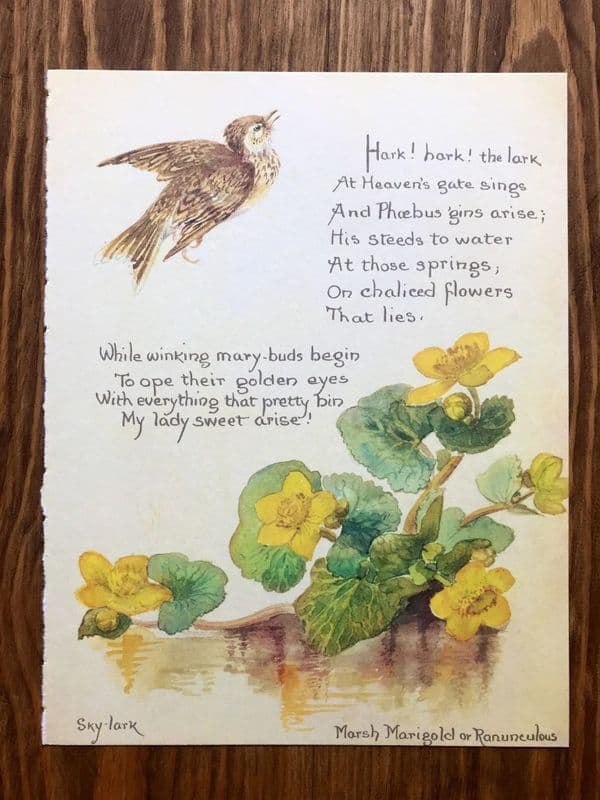 Hark! hark! the lark
At Heaven's gate sings
And Phœbus 'gins arise;
His steeds to water
At those springs;
On chaliced flowers
That lies.
While winking mary-buds begin
To ope their golden eyes
With everything that pretty bin
My lady sweet arise!
Sky-lark
Marsh Marigold or Ranunculous